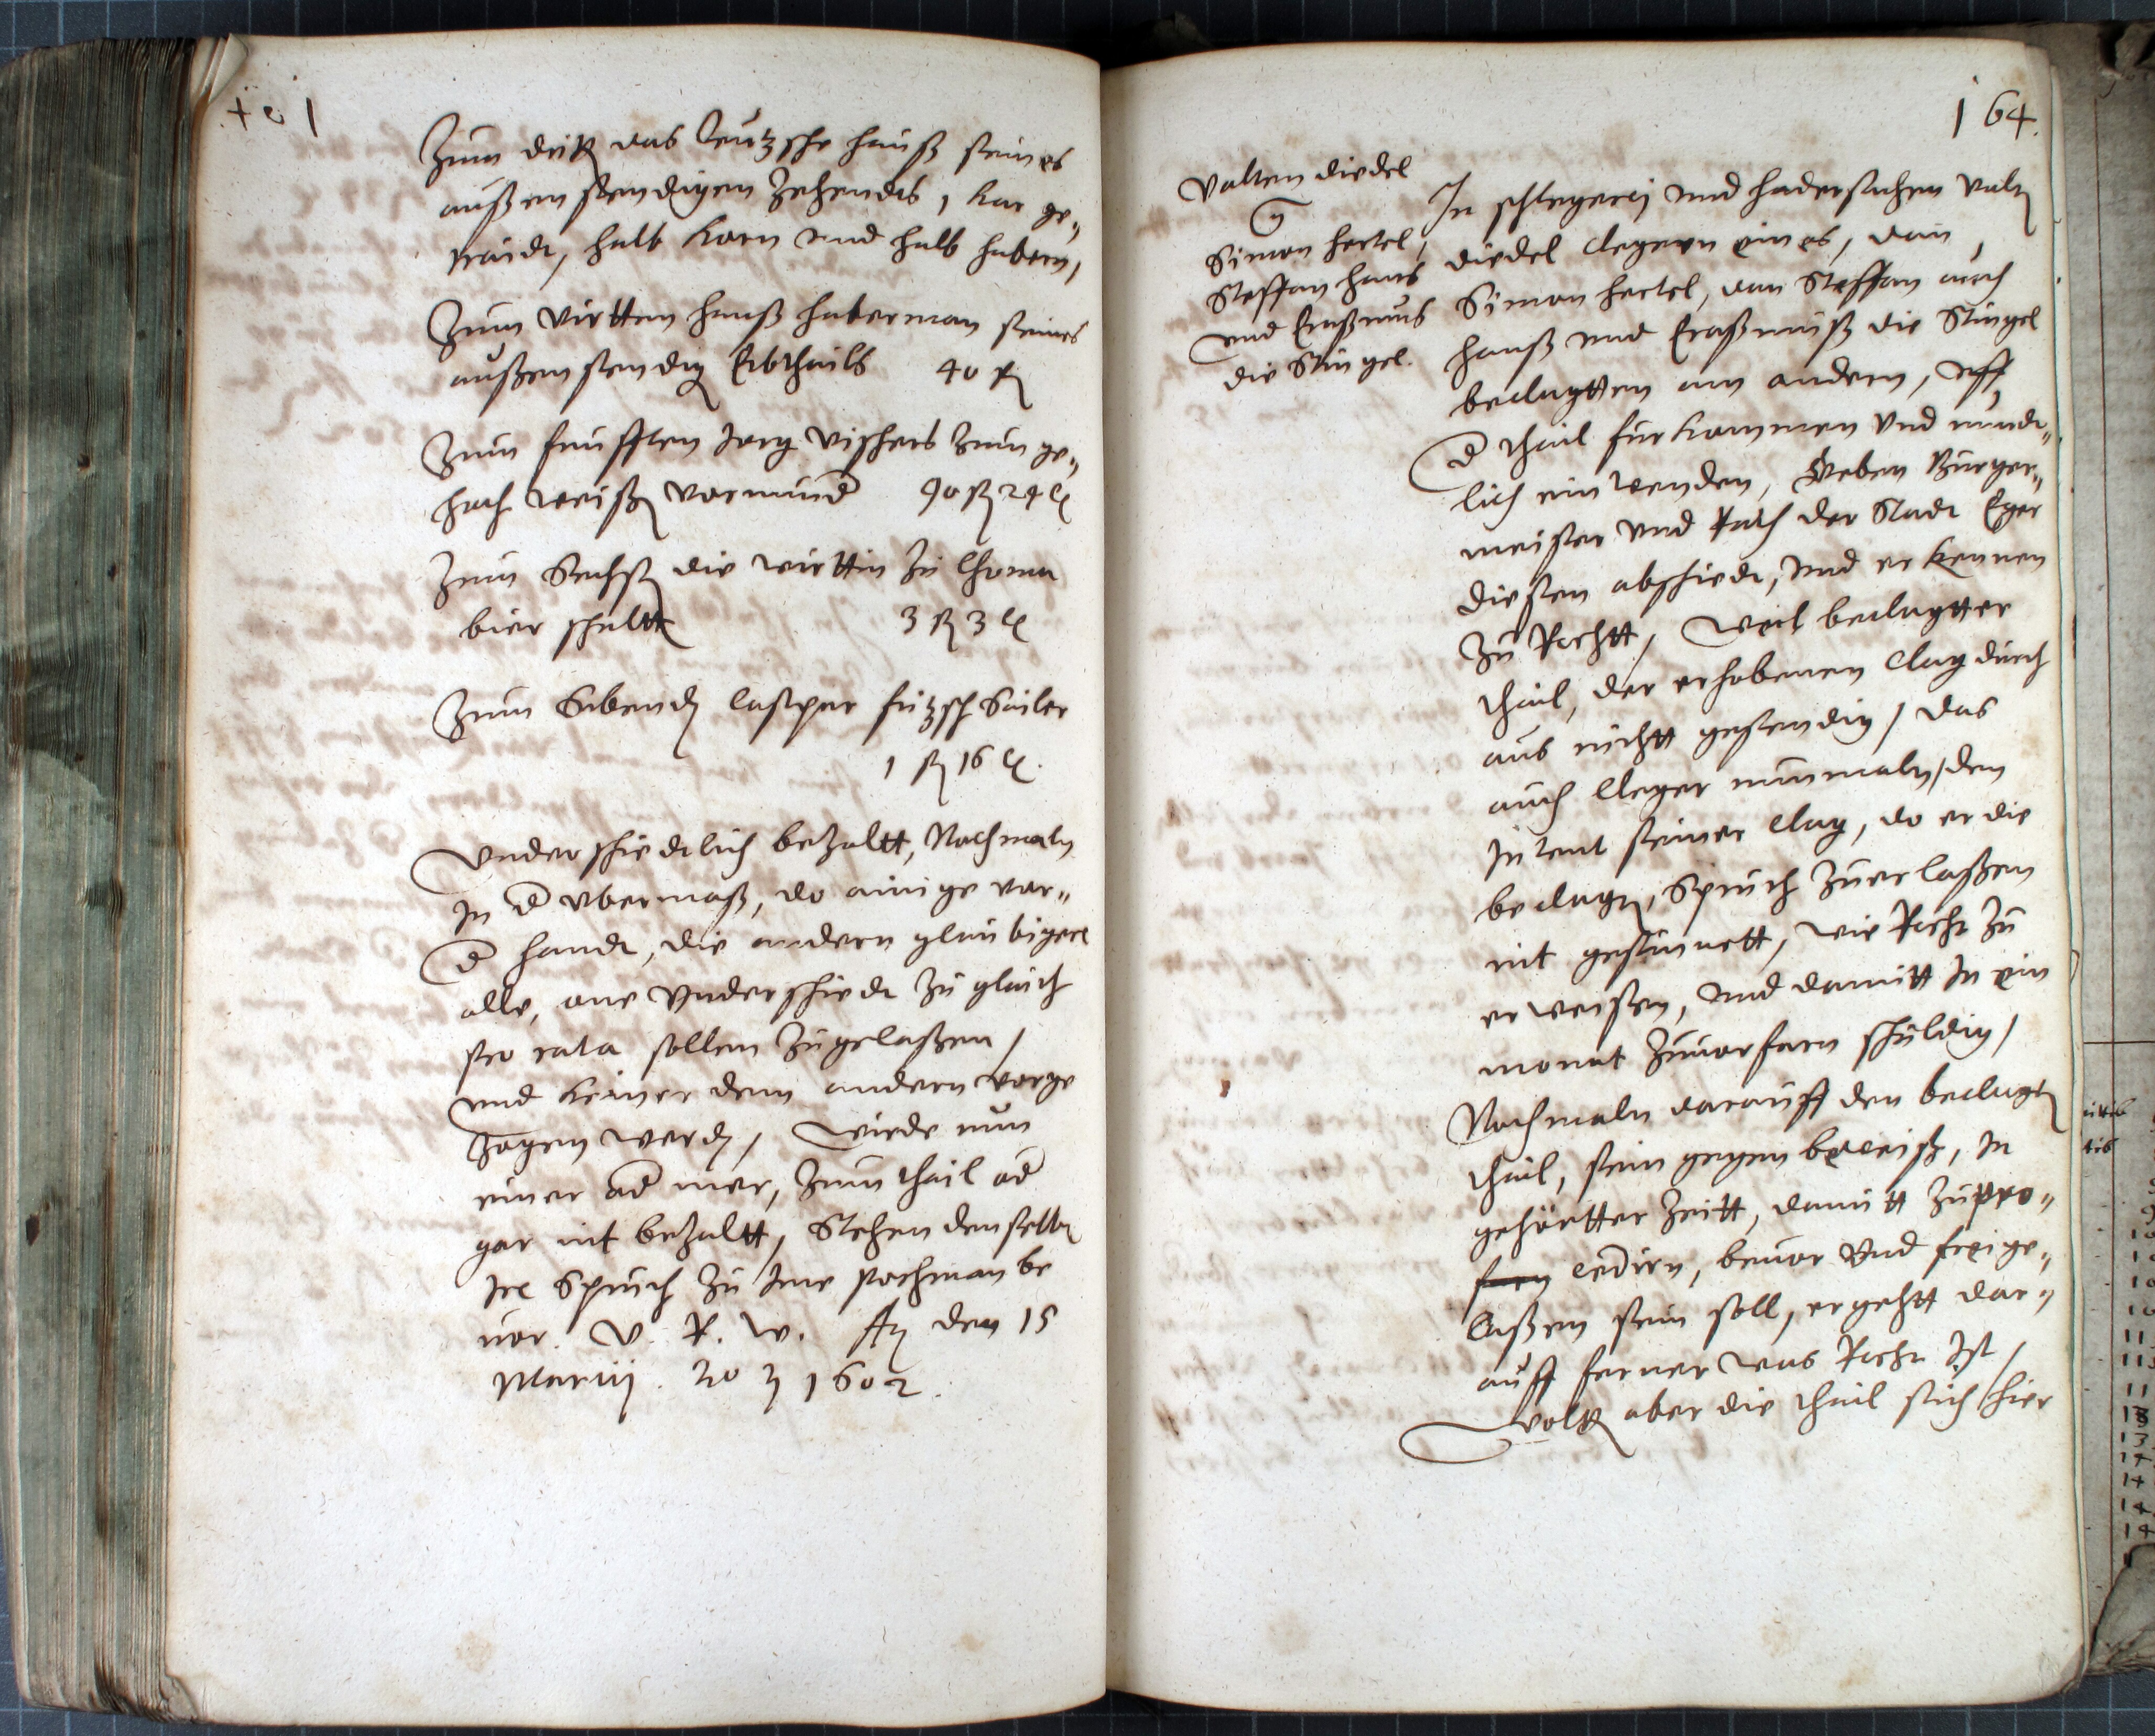 Zum drit das Teutzsche hauß seines
außenstendigen Zehendts, 1 kar ge„
traidt, halb korn und halb habern,
Zum Virtten hanß haberman seines
außenstendig Erbthails 40 fl
Zum funfften Jorg Vischers Zum ge„
hoch weiß vormund 40 fl 24 kr
Zum Sechst die wirttin Zu
bier schultt 3 fl 3 kr
Zum Sibend Caspar fritzsch Sailer
1 fl 16 kr.
Underschiedtlich bezaltt, Nachmaln
In d ubermaß, do ainige vor„
d handt, die andern glaubiger
alle, one Underschiedt Zu gleich
pro rata sollen Zugelaßen,
und keiner dem andern vorge
Zogen werd, wirde nun
einer od mer, Zum thail od
gar nit bezaltt, Stehen denselb
Ire Spruch Zu Ime pochman be
vor. V. R. w. Act den 15
Martij. Ao 1602.
164.
Valten diedel
Simon hertel,
Steffan hans
und Eraßmus
die Stingel.
In schlegerej und hadersachen Valt
diedel clegern eines, dan
Simon hertel, dan Steffan auch
hanß und Eraßmuß die Stingel
beclagtten am andern, uff
d thail furkommen und mundt„
lich einwenden, Geben Burger„
meister und Rath der Stadt Eger
diesen abschiedt, und erkennen
Zu Rechtt, Weil beclagtter
thail, der erhobenen Clag durch
aus nichtt gestendig, das
auch Cleger nunmaln, den
Intent seiner Clag, do er die
beclagt, Spruch Zuerlaßen
nit gesinnett, wie Recht Zu
erweisen, und damitt In ein
monat Zuuorfarn schuldig,
Nachmaln darauff den beclagt
thail, sein gegenbeweiß, In
gehörtter Zeitt, damitt Zupro„
cedirn, beuor und freige„
laßen sein soll, ergehtt dar„
auff ferner was Recht Ist,
Wolt aber die thail sich hier